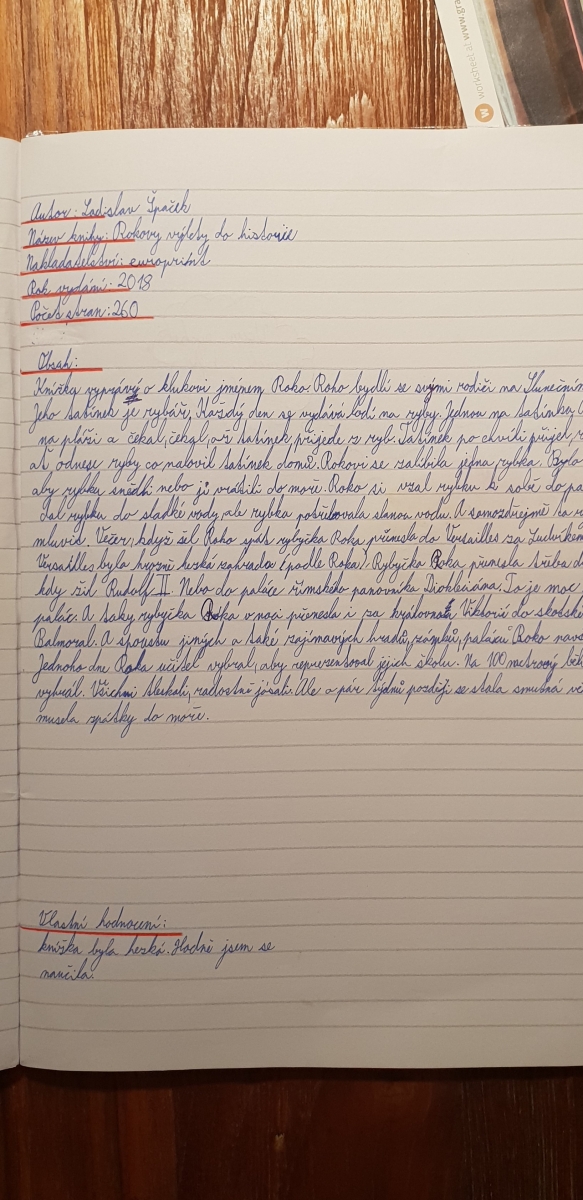 worksheet at www.gra
M
Autor: Ladislav Špaček
Název knihy: Rokovy výlety do historie
Nakladatelství: europrint
Rok vydání: 2018
Počet stran: 260
Obsah:
Knížka vypráví o klukovi jménem Roko. Roko bydlí se svými rodiči na Slunečním
Jeho tatínek je rybář. Každý den se vydává lodí na ryby. Jednou na tatínka
na pláži a čekal, čekal, až tatínek přijede z ryb. Tatínek po chvíli přijel,
ať odnese ryby co nalovil tatínek domů. Rokovi se zalíbila jedna rybka. Byla
aby rybku snědli nebo ji vrátili do moře. Roko si vzal rybku k sobě do
dal rybku do sladké vody, ale rybka potřebovala slanou vodu. A samozdřejmě ta
mluvit. Večer, když šel Roko spát rybyčka Roka přenesla do Versailles za Ludvíkem
Versailles byla hrozně hezká zahrada (podle Roka). Rybyčka Roka přenesla třeba
kdy žil Rudolf II. Nebo do paláce římského panovníka Diokleciána. To je moc
palác. A taky rybyčka Roka v noci přenesla i za královnou Viktorií do skotské
Balmoral. A spoustu jiných a také zajímavých hradů, zámků, paláců Roko
Jednoho dne Roka učitel vybral, aby reprezentoval jejich školu. Na 100 metrový
vyhrál. Všichni tleskali, radostně jásali. Ale o pár týdnů později se stala smutná
musela zpátky do moře.
Vlastní hodnocení:
knížka byla hezká. Hodně jsem se
naučila.